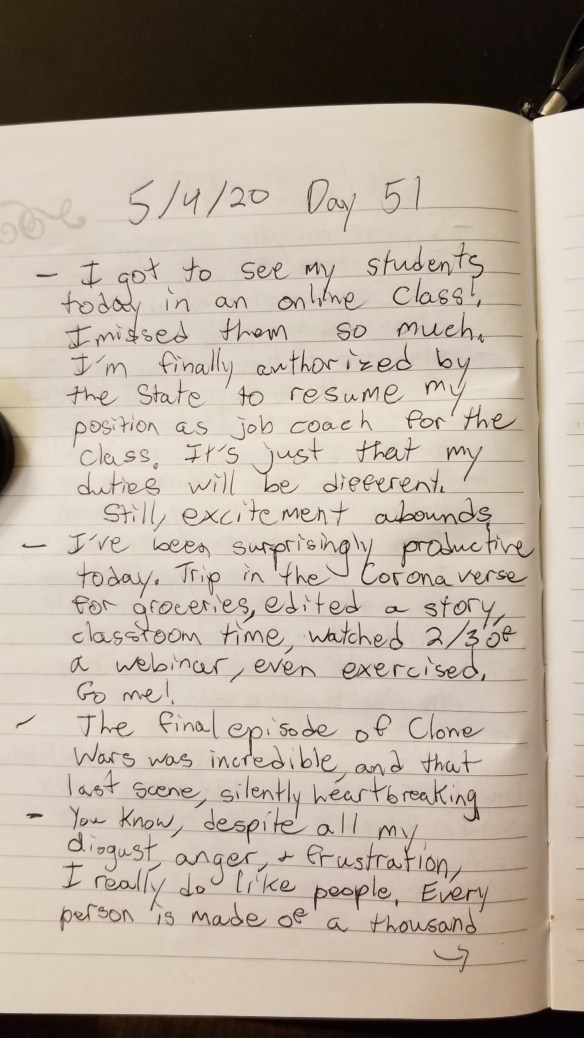 5/4/20 Day 51
- I got to see my students
today in an online class!
I missed them so much.
I'm finally authorized by
the State to resume my
position as job coach for the
class. It's just that my
duties will be different.
Still, excitement abounds
- I've been surprisingly productive
today. Trip in the Coronaverse
for groceries, edited a story,
classroom time, watched 2/3 of
a webinar, even exercised.
Go me!
- The final episode of Clone
Wars was incredible, and that
last scene, silently heartbreaking
- You know, despite all my
disgust, anger, + frustration,
I really do like people. Every
person is made of a thousand